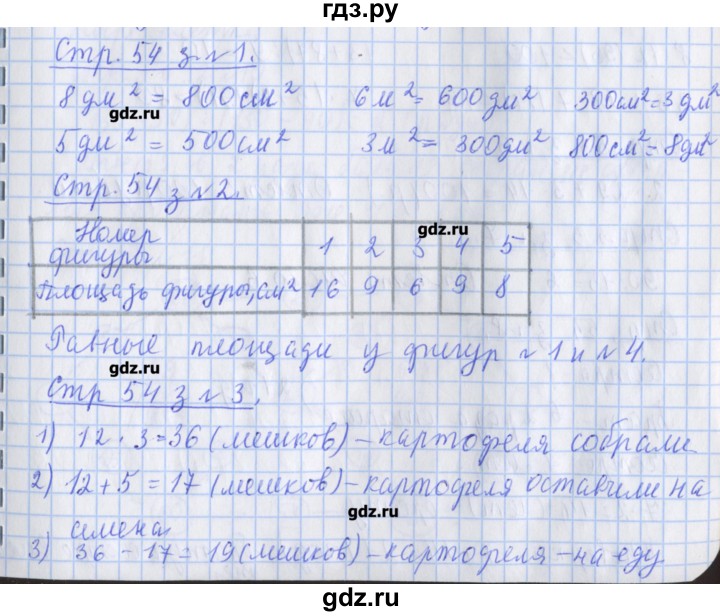 гдз.ру
Стр. 54 з. №1.
8 дм² = 800 см² 6 м² = 600 дм² 300 см² = 3 дм²
gdz.ru
5 дм² = 500 см² 3 м² = 300 дм² 800 см² = 8 дм²
Стр. 54 з №2.
gdz.ru
Номер фигуры 1 2 3 4 5
Площадь фигуры, см² 16 9 6 9 8
Равные площади у фигур №1 и №4.
gdz.ru
Стр 54 з №3.
1) 12 · 3 = 36 (мешков) – картофеля собрали
2) 12 + 5 = 17 (мешков) – картофеля оставили на
семена
gdz.ru
3) 36 - 17 = 19 (мешков) – картофеля – на еду
gdz.ru